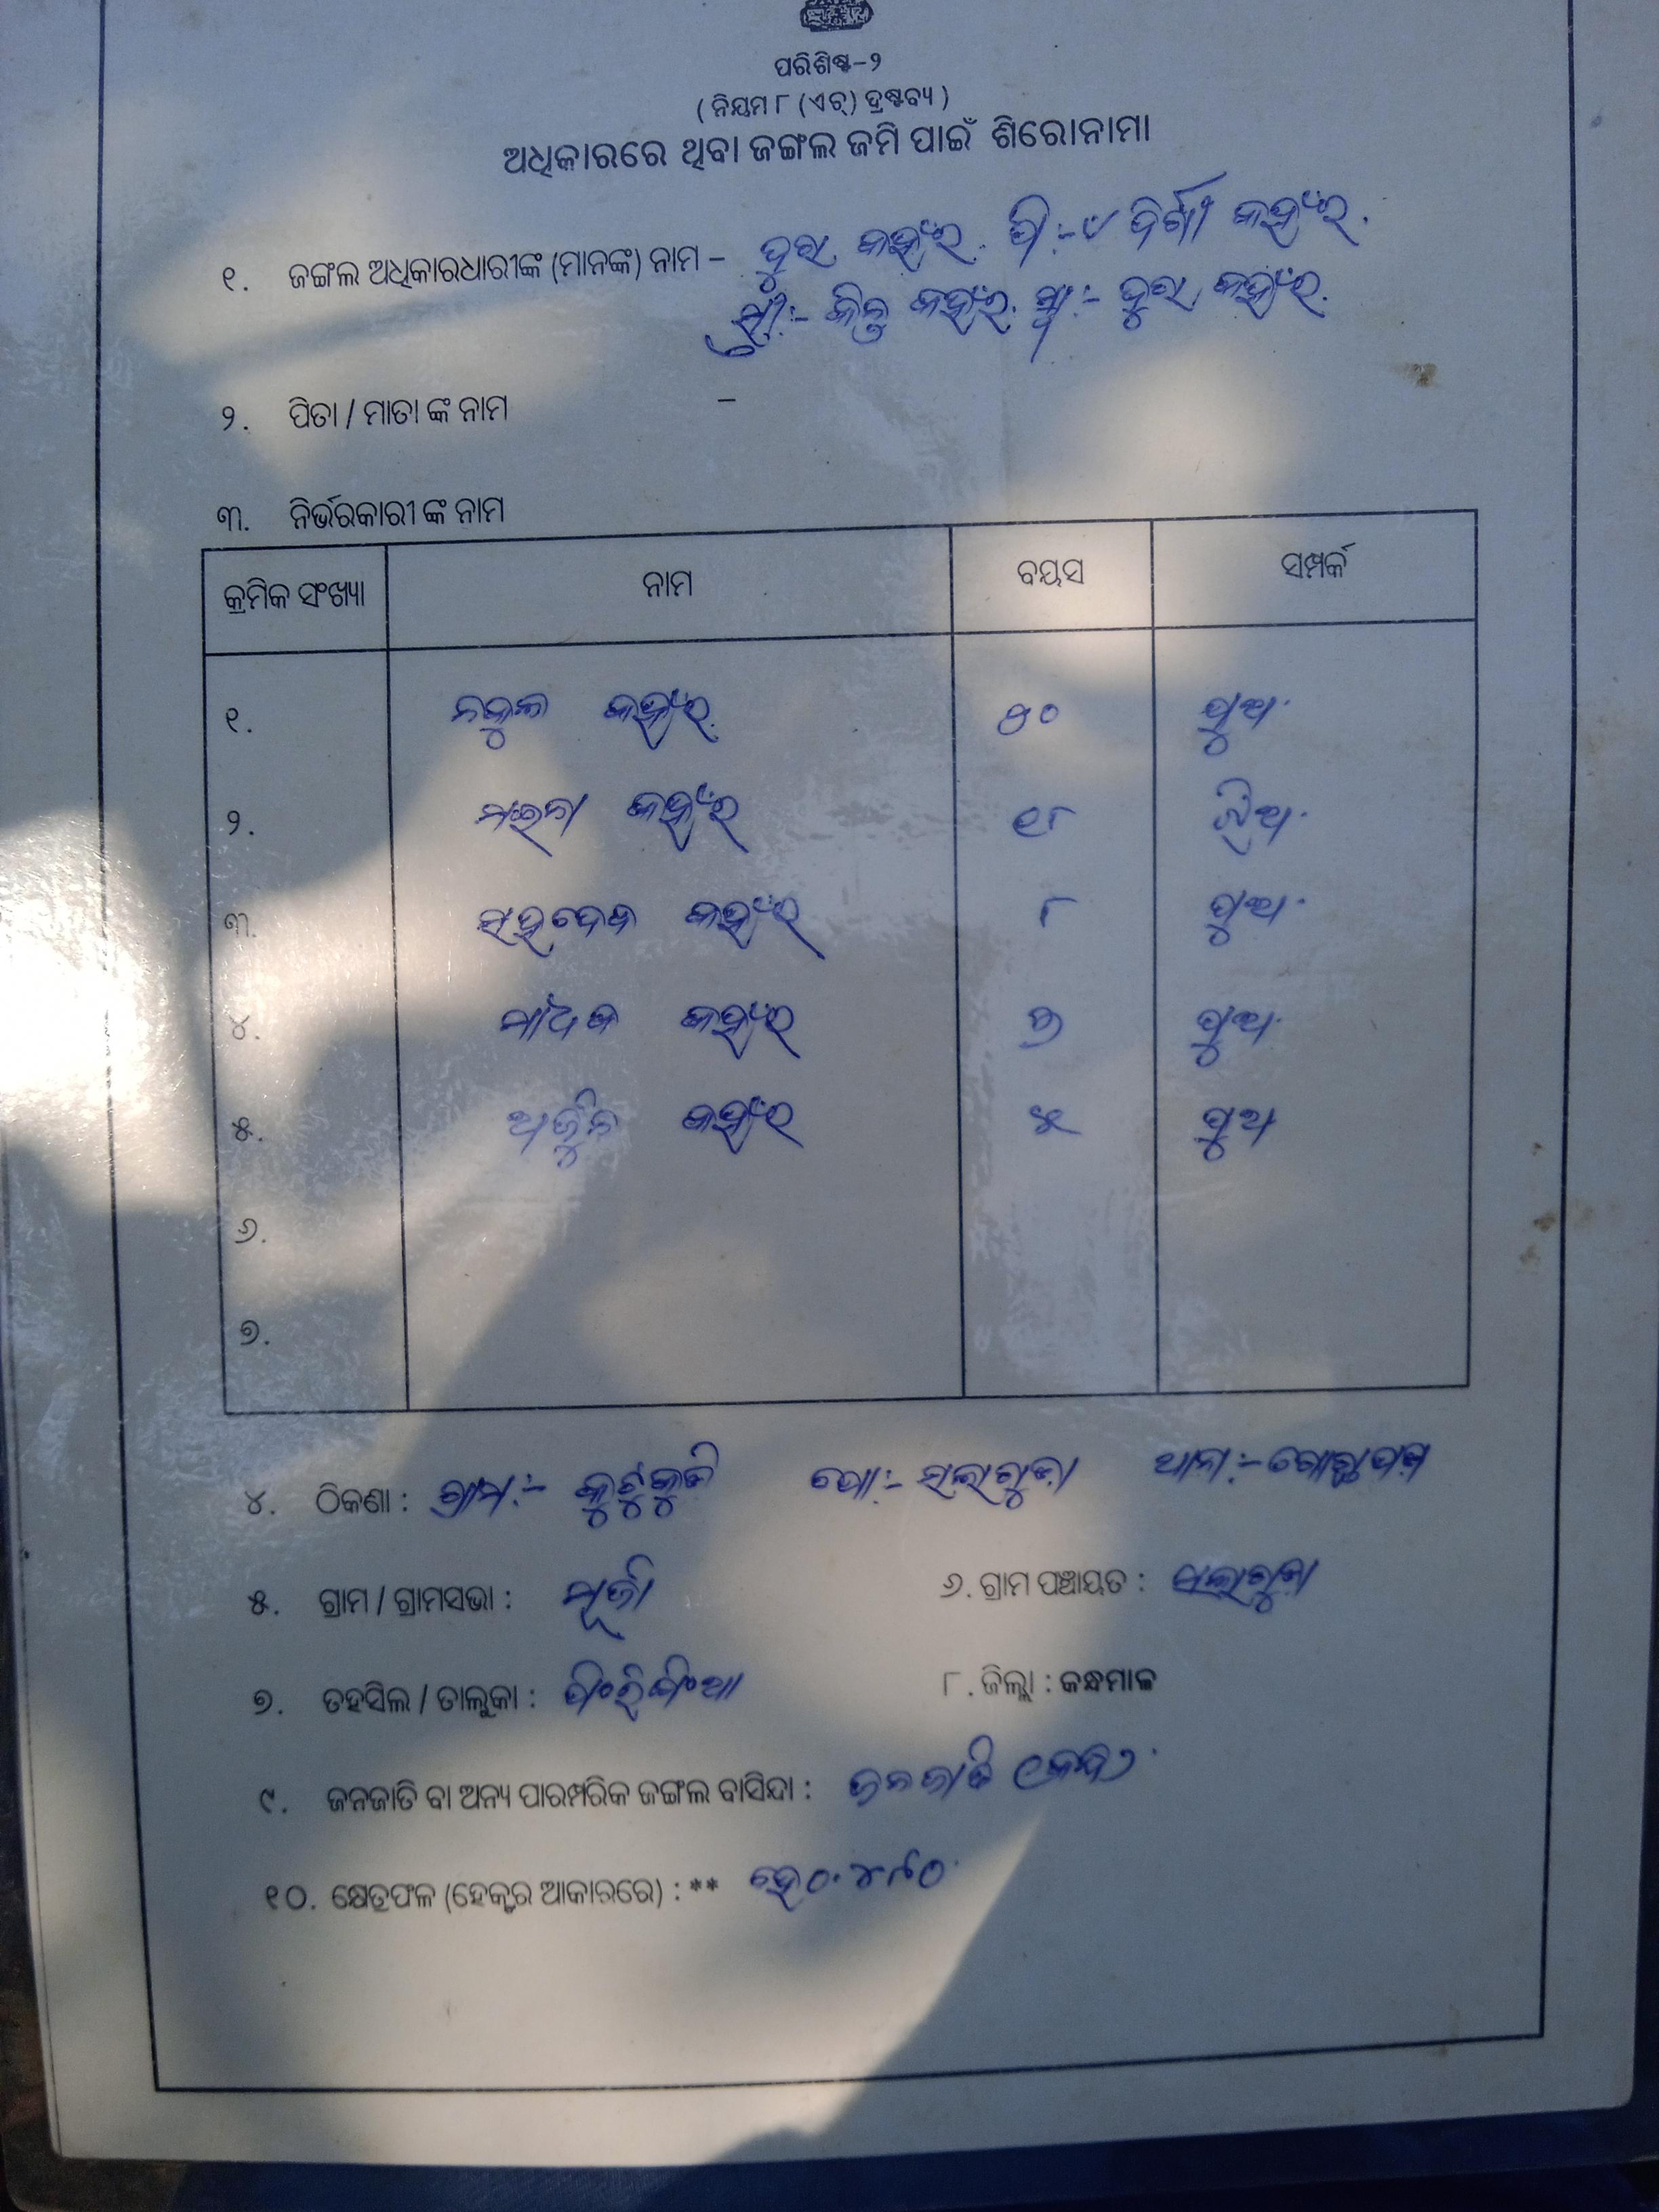 ପରିଶିଷ୍ଟ-୨
( ନିୟମ ୮ (ଏଚ୍) ଦ୍ରଷ୍ଟବ୍ୟ )
ଅଧିକାରରେ ଥିବା ଜଙ୍ଗଲ ଜମି ପାଇଁ ଶିରୋନାମା
୧. ଜଙ୍ଗଲ ଅଧିକାରଧାରୀଙ୍କ (ମାନଙ୍କ) ନାମ – କହଁର. କହଁର.
ସ୍ତ୍ରୀ:- କହଁର. ସ୍ୱା:- କହଁର.
୨. ପିତା / ମାତା ଙ୍କ ନାମ –
୩. ନିର୍ଭରକାରୀ ଙ୍କ ନାମ
କ୍ରମିକ ସଂଖ୍ୟା ନାମ ବୟସ ସମ୍ପର୍କ
୧. ନକୁଳ କହଁର. ପୁଅ.
୨. କହଁର ୧୮ ଝିଅ.
୩. ସହଦେବ କହଁର ୮ ପୁଅ.
୪. କହଁର ପୁଅ.
୫. ଅର୍ଜୁନ କହଁର ୫ ପୁଅ
୬.
୭.
୪. ଠିକଣା : ଗ୍ରାମ:- ପୋ:- ସଲାଗୁଡ଼ା ଥାନା:- ଗୋଛାପଡ଼ା
୫. ଗ୍ରାମ / ଗ୍ରାମସଭା : ୬. ଗ୍ରାମ ପଞ୍ଚାୟତ : ସଲାଗୁଡ଼ା
୭. ତହସିଲ / ତାଲୁକା : ଫିରିଙ୍ଗିଆ ୮. ଜିଲ୍ଲା : କନ୍ଧମାଳ
୯. ଜନଜାତି ବା ଅନ୍ୟ ପାରମ୍ପରିକ ଜଙ୍ଗଲ ବାସିନ୍ଦା : ଜନଜାତି (କନ୍ଧ)
୧୦. କ୍ଷେତ୍ରଫଳ (ହେକ୍ଟର ଆକାରରେ) : ** ହେ ୦.୪୮୦